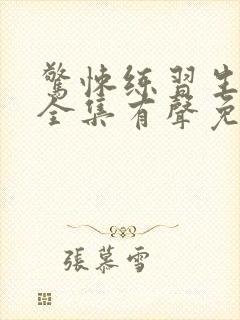 驚悚练習生
全集有聲免
張慕雪